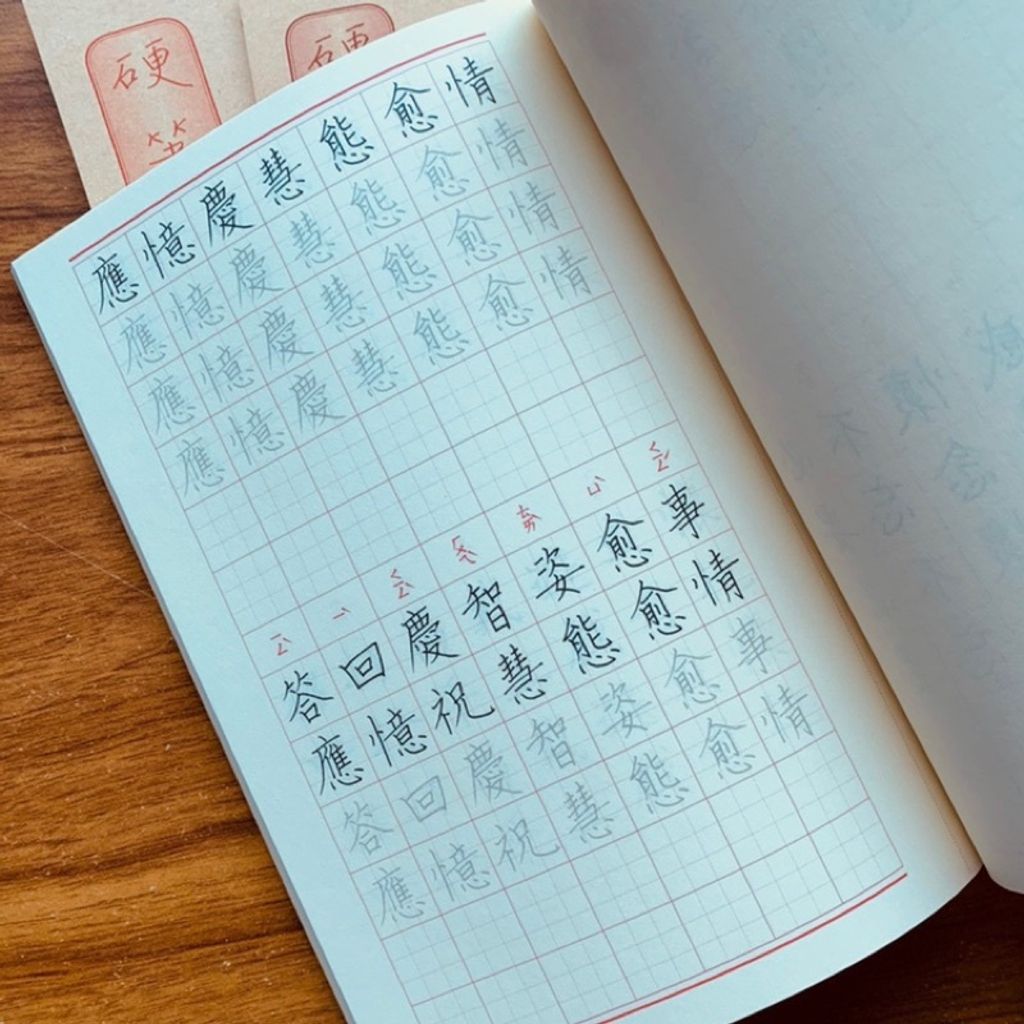 硬
硬
情情情情
愈愈愈愈
態態態態
慧慧慧慧
慶慶慶慶
憶憶憶憶
應應應應
事情事情
愈愈愈愈
姿態姿態
智慧智慧
慶祝慶祝
回憶回憶
答應答應